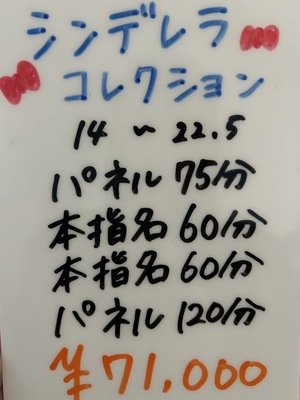 シンデレラ
コレクション
14 〜 22.5
パネル 75分
本指名 60分
本指名 60分
パネル 120分
¥71,000